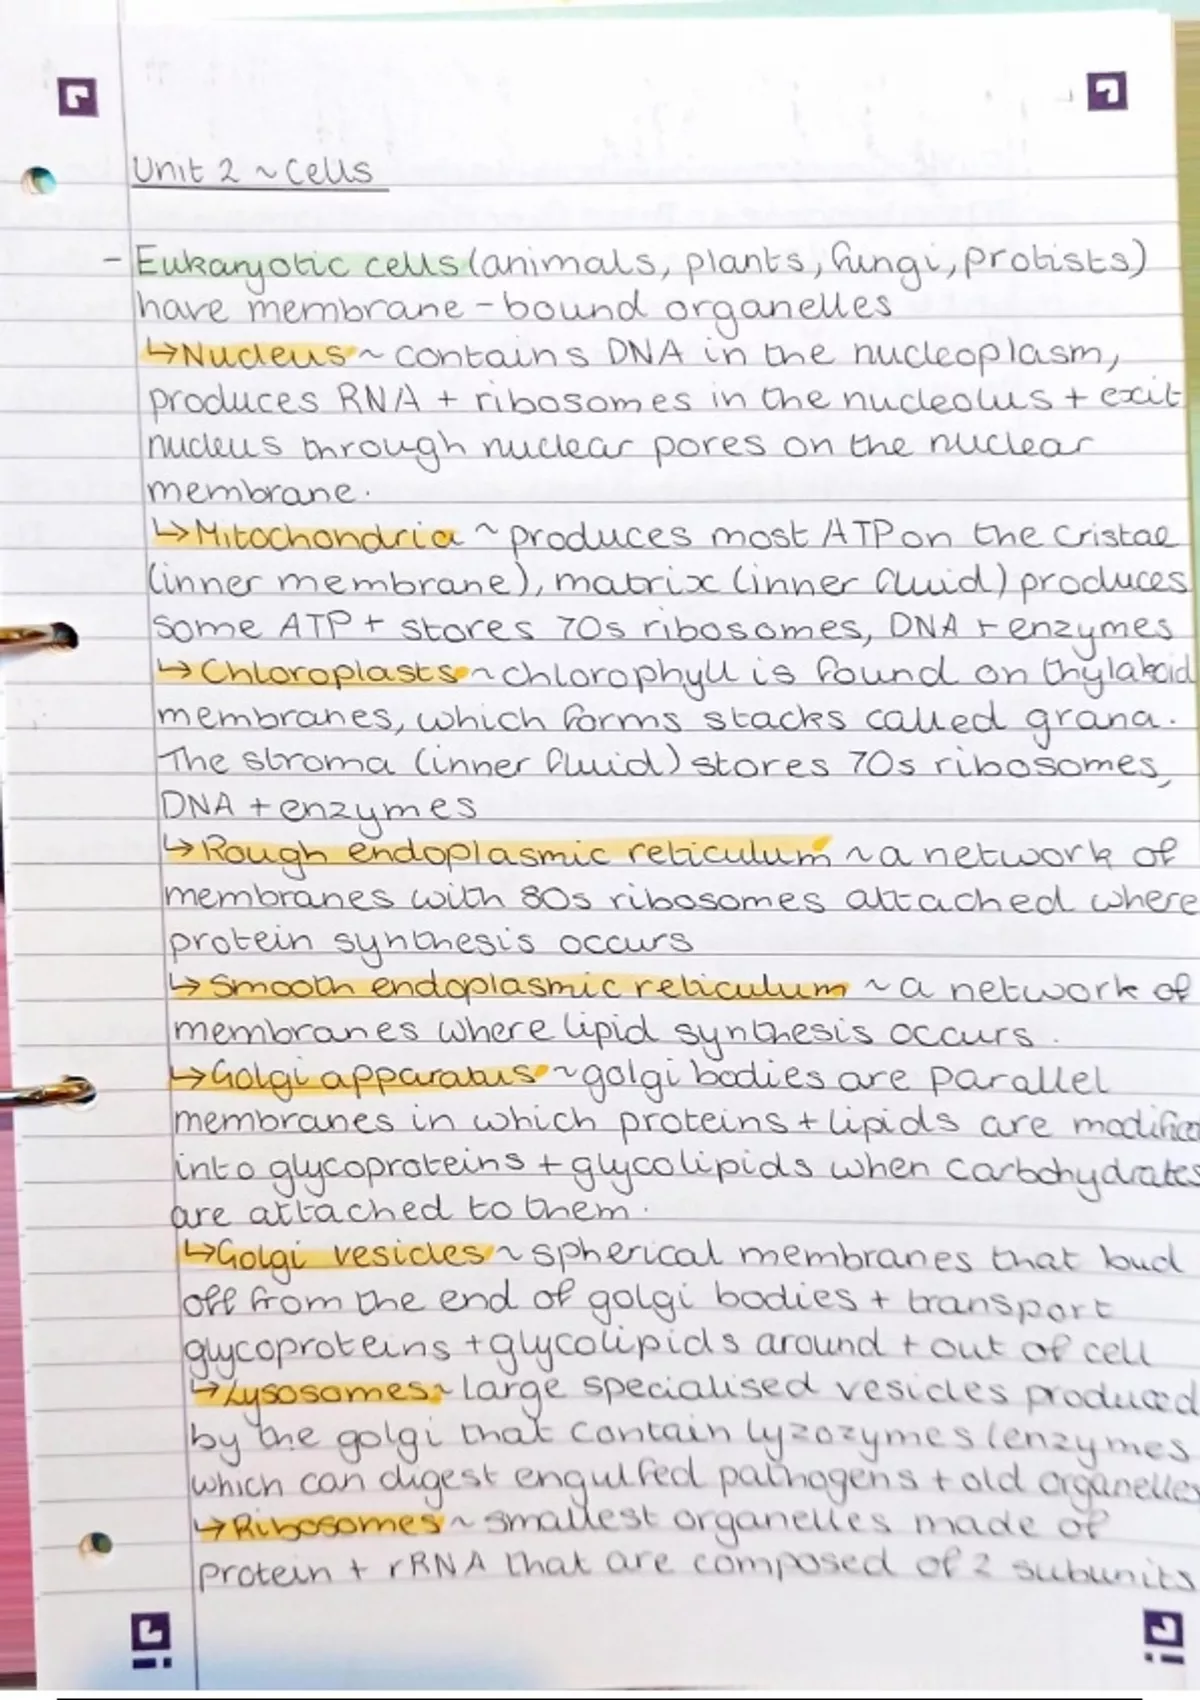 Unit 2 ~ Cells
- Eukaryotic cells (animals, plants, fungi, protists)
have membrane-bound organelles
↳ Nucleus ~ contains DNA in the nucleoplasm,
produces RNA + ribosomes in the nucleolus + exit
nucleus through nuclear pores on the nuclear
membrane.
↳ Mitochondria ~ produces most ATP on the cristae
(inner membrane), matrix (inner fluid) produces
some ATP + stores 70s ribosomes, DNA + enzymes
↳ Chloroplasts ~ chlorophyll is found on thylakoid
membranes, which forms stacks called grana.
The stroma (inner fluid) stores 70s ribosomes,
DNA + enzymes
↳ Rough endoplasmic reticulum ~ a network of
membranes with 80s ribosomes attached where
protein synthesis occurs
↳ Smooth endoplasmic reticulum ~ a network of
membranes where lipid synthesis occurs.
↳ Golgi apparatus ~ golgi bodies are parallel
membranes in which proteins + lipids are
into glycoproteins + glycolipids when carbohydrates
are attached to them.
↳ Golgi vesicles ~ spherical membranes that bud
off from the end of golgi bodies + transport
glycoproteins + glycolipids around + out of cell
↳ Lysosomes ~ large specialised vesicles produced
by the golgi that contain lyzozymes (enzymes
which can digest engulfed pathogens + old organelles
↳ Ribosomes ~ smallest organelles made of
protein + rRNA that are composed of 2 subunits